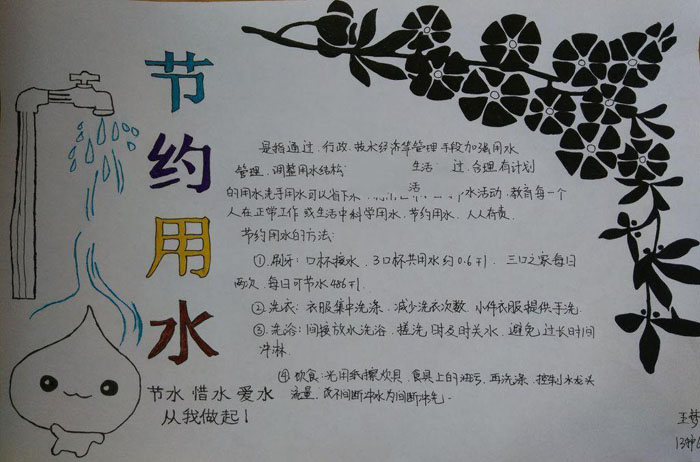 节约用水
是指通过、行政、技水经济等管理手段加强用水
管理,调整用水结构 生活 过、合理、有计划
活
的用水 用水可以省下水 水活动,教育每一个
人在正常工作或生活中科学用水,节约用水,人人有责.
节约用水的方法:
①.刷牙:口杯接水、3口杯共用水约0.6千升. 三口之家每日
两次,每日可节水486千升.
②.洗衣:衣服集中洗涤、减少洗衣次数、小件衣服提倡手洗.
③.洗浴:间接放水洗浴、搓洗及时关水、避免过长时间
冲淋.
④.饮食:先用纸擦炊具、食具上的油污、再洗涤、控制水龙头
流量、改不间断冲水为间断冲洗.
节水 惜水 爱水
从我做起!
王梦